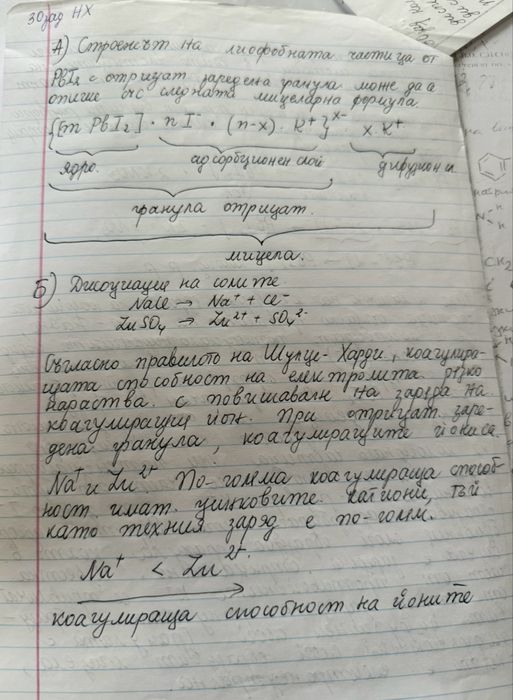 30 зад НХ
А) Строежът на лиофобната частица от
PbI₂ с отрицат заредена гранула може да а
опише със следната мицеларна формула
{[m PbI₂] · n I⁻ · (n-x) · K⁺}ˣ⁻ x·K⁺
ядро. адсорбционен слой дифузион сл
гранула отрицат.
мицела.
Б) Дисоциация на солите
NaCl → Na⁺ + Cl⁻
ZnSO₄ → Zn²⁺ + SO₄²⁻
Съгласно правилото на Шулце-Харди, коагулира-
щата способност на електролита рязко
нараства. с повишаван на заряда на
коагулиращия йон. При отрицат. заре-
дена гранула, коагулиращите йони са
Na⁺ и Zn²⁺. По-голяма коагулираща способ-
ност имат. цинковите катиони, тъй
като техния заряд е по-голям.
Na⁺ < Zn²⁺.
коагулираща способност на йоните